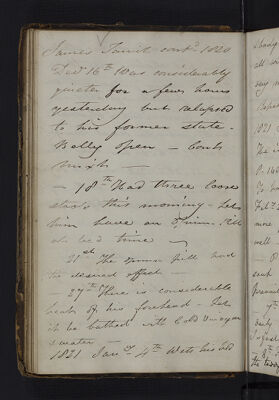 James Smith contd 1820
Decr 16th Was considerably
quieter for a few hours
yesterday but relapsed
to his former state.
Belly open — Contr
Mixt —
— 18th Had three loose
stools this morning — Let
him have an Opium Pill
at bed time —
21st The Opium pill had
the desired effect —
27th There is considerable
heat of his forehead — Let
it be bathed with Cold Vinegar
& water —
1821 Jany 4th Wets his bed